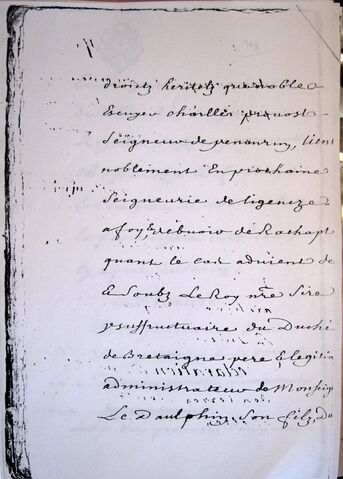 droictz heritelz que noble
Escuyer charlles prevost
Seigneur de penanrun, tient
noblement En prochaine
Seigneurie de ligence a
a foy & debvoir de Rachapt
quant le cas advient de
& Soubz Le Roy nre Sire
ysuffructuaire du Duché
de Bretaigne pere & legitim
administrateur de Monseig
Le Daulphin Son filz, Du